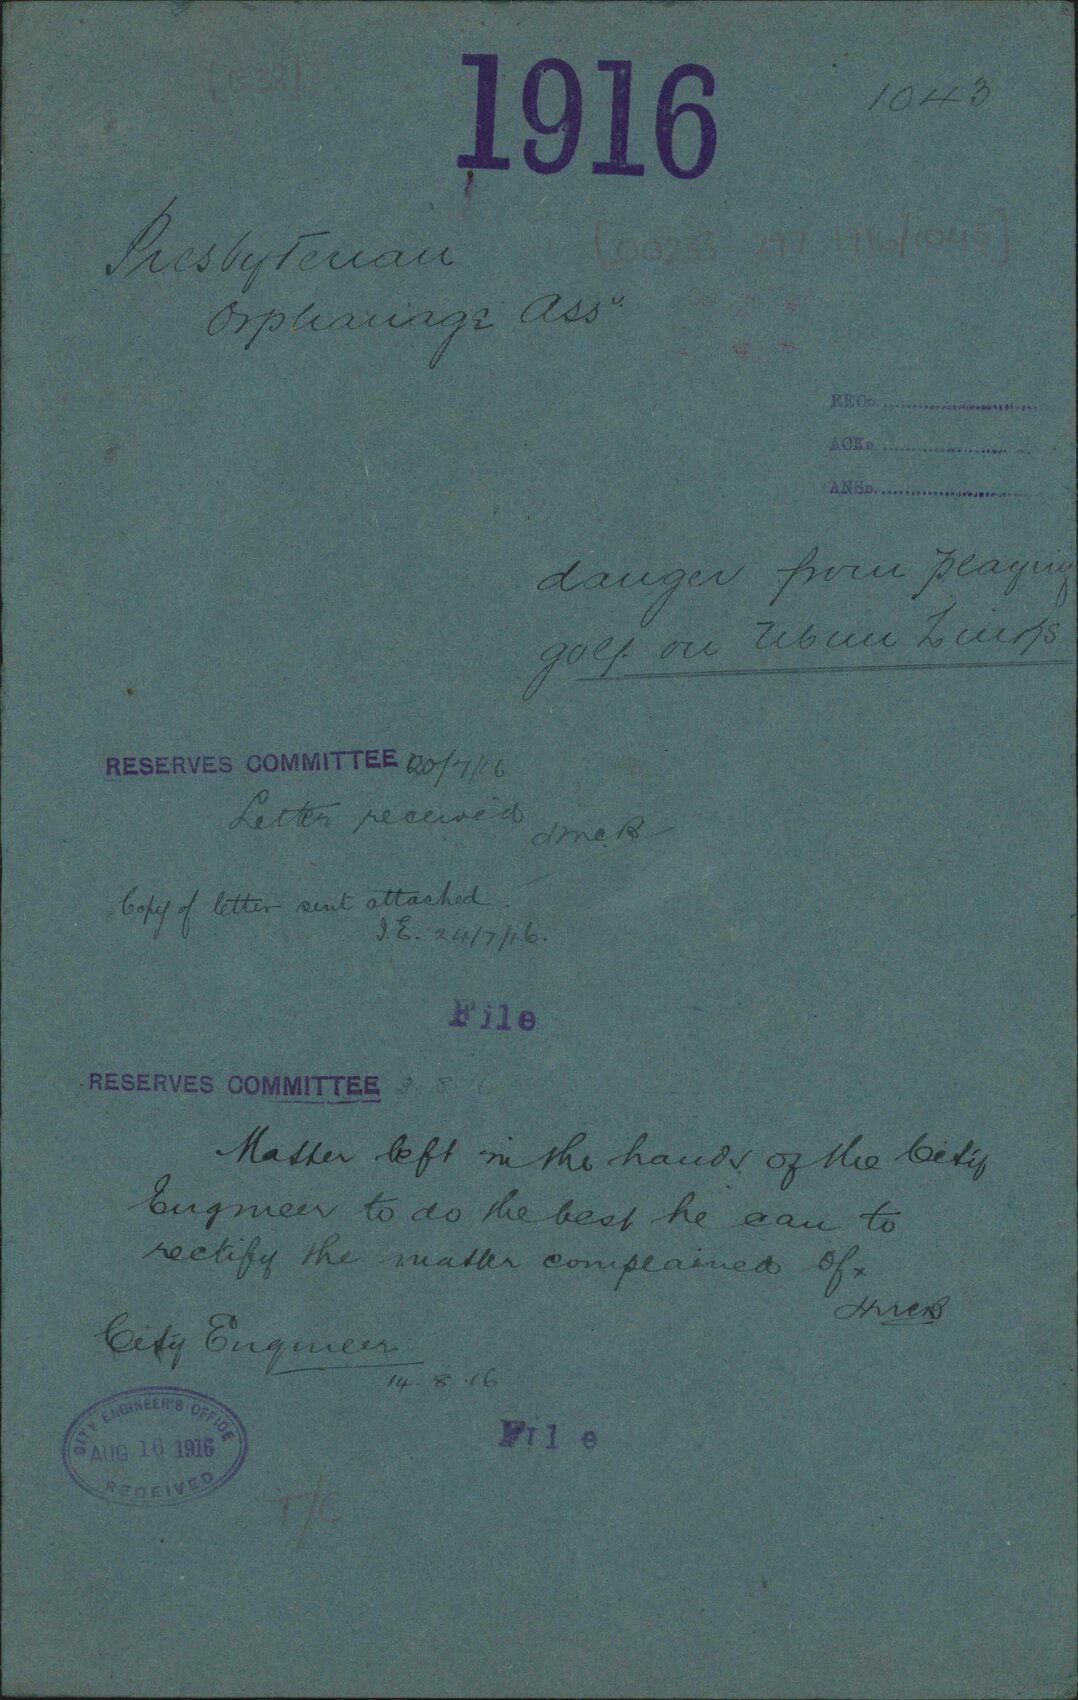 1916
1043
Presbyterian
Orphanage Assn.
RECD.
ACKD.
ANSD.
danger from playing
golf on Links
RESERVES COMMITTEE 20/7/16
Letter received
Copy of letter sent attached.
24/7/16.
File
RESERVES COMMITTEE
Matter left in the hands of the City
Engineer to do the best he can to
rectify the matter complained of
City Engineer
14.8.16
CITY ENGINEER'S OFFICE
AUG 16 1916
RECEIVED
File
T/C